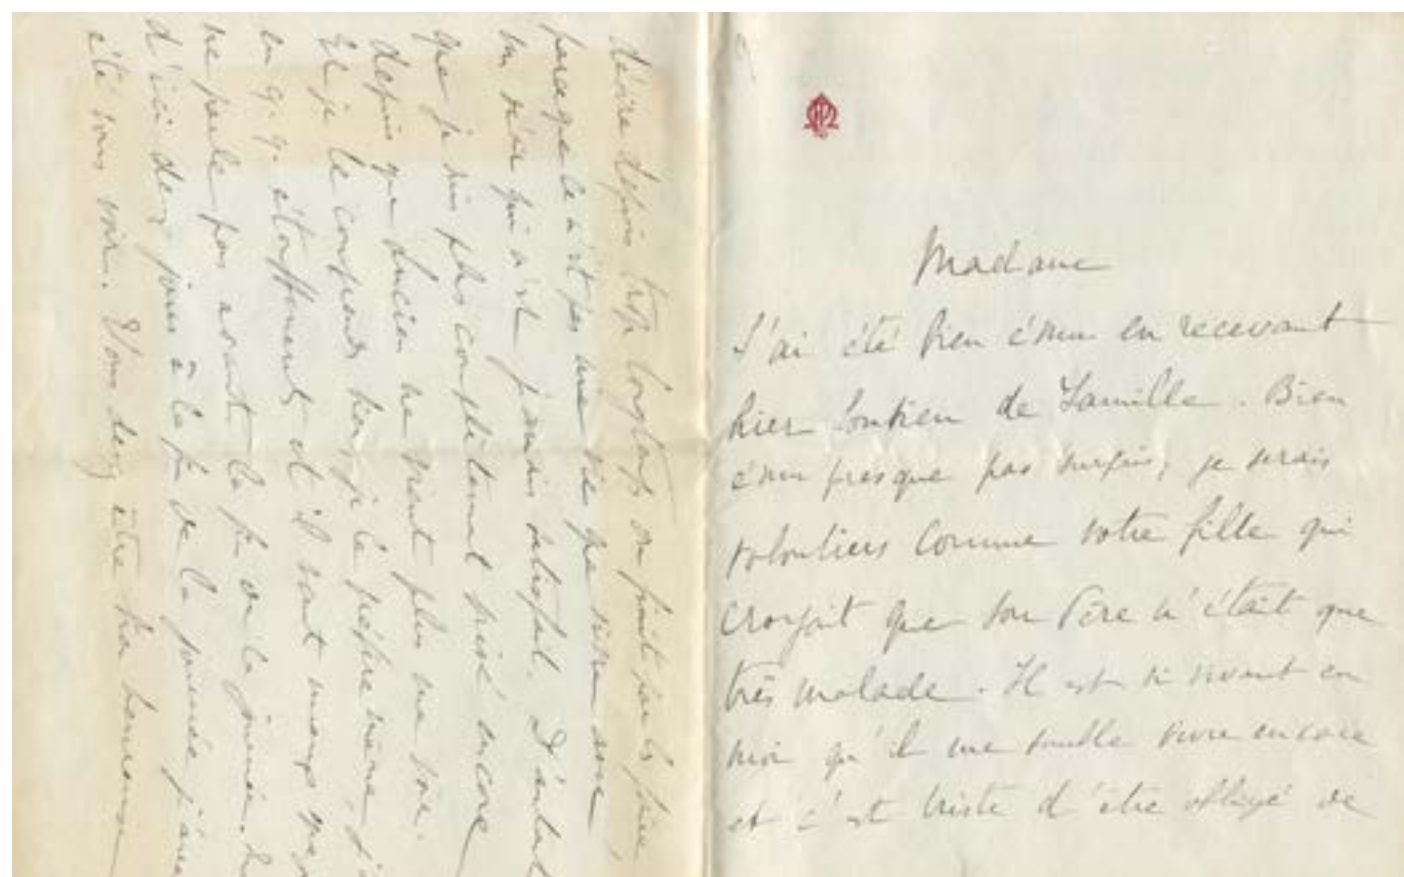 Madame
J'ai été bien ému en recevant
hier Soutien de Famille. Bien
ému presque pas surpris, je serais
volontiers comme votre fille qui
croyait que son Père n'était que
très malade. Il est si vivant en
moi qu'il me semble vivre encore
et c'est triste d'être obligé de
désire depuis trop longtemps on finit par les faire,
parce que ce n'est pas une vie que vivre sans
un rêve qui n'est jamais satisfait. D'autant
que je suis plus complètement brisé encore
depuis que Lucien ne vient plus me voir.
Et je le comprends, je le préfère même j'
en q. q. étouffements et il vaut mieux
ne parle pas avant la fin de la journée.
d'ici deux jours à la fin de la journée j'
été vous voir. Vous devez être heureuse